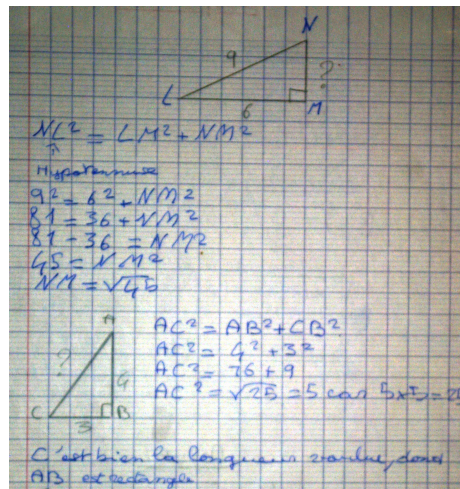 N
9
?
L
6
M
NL² = LM² + NM²
Hypotennuse
9² = 6² + NM²
81 = 36 + NM²
81 - 36 = NM²
45 = NM²
NM = √45
A
?
4
C
3
B
AC² = AB² + CB²
AC² = 4² + 3²
AC² = 16 + 9
AC² = √25 = 5 car 5x5 = 25
C'est bien la longueur voulue, donc
AB est rectangle